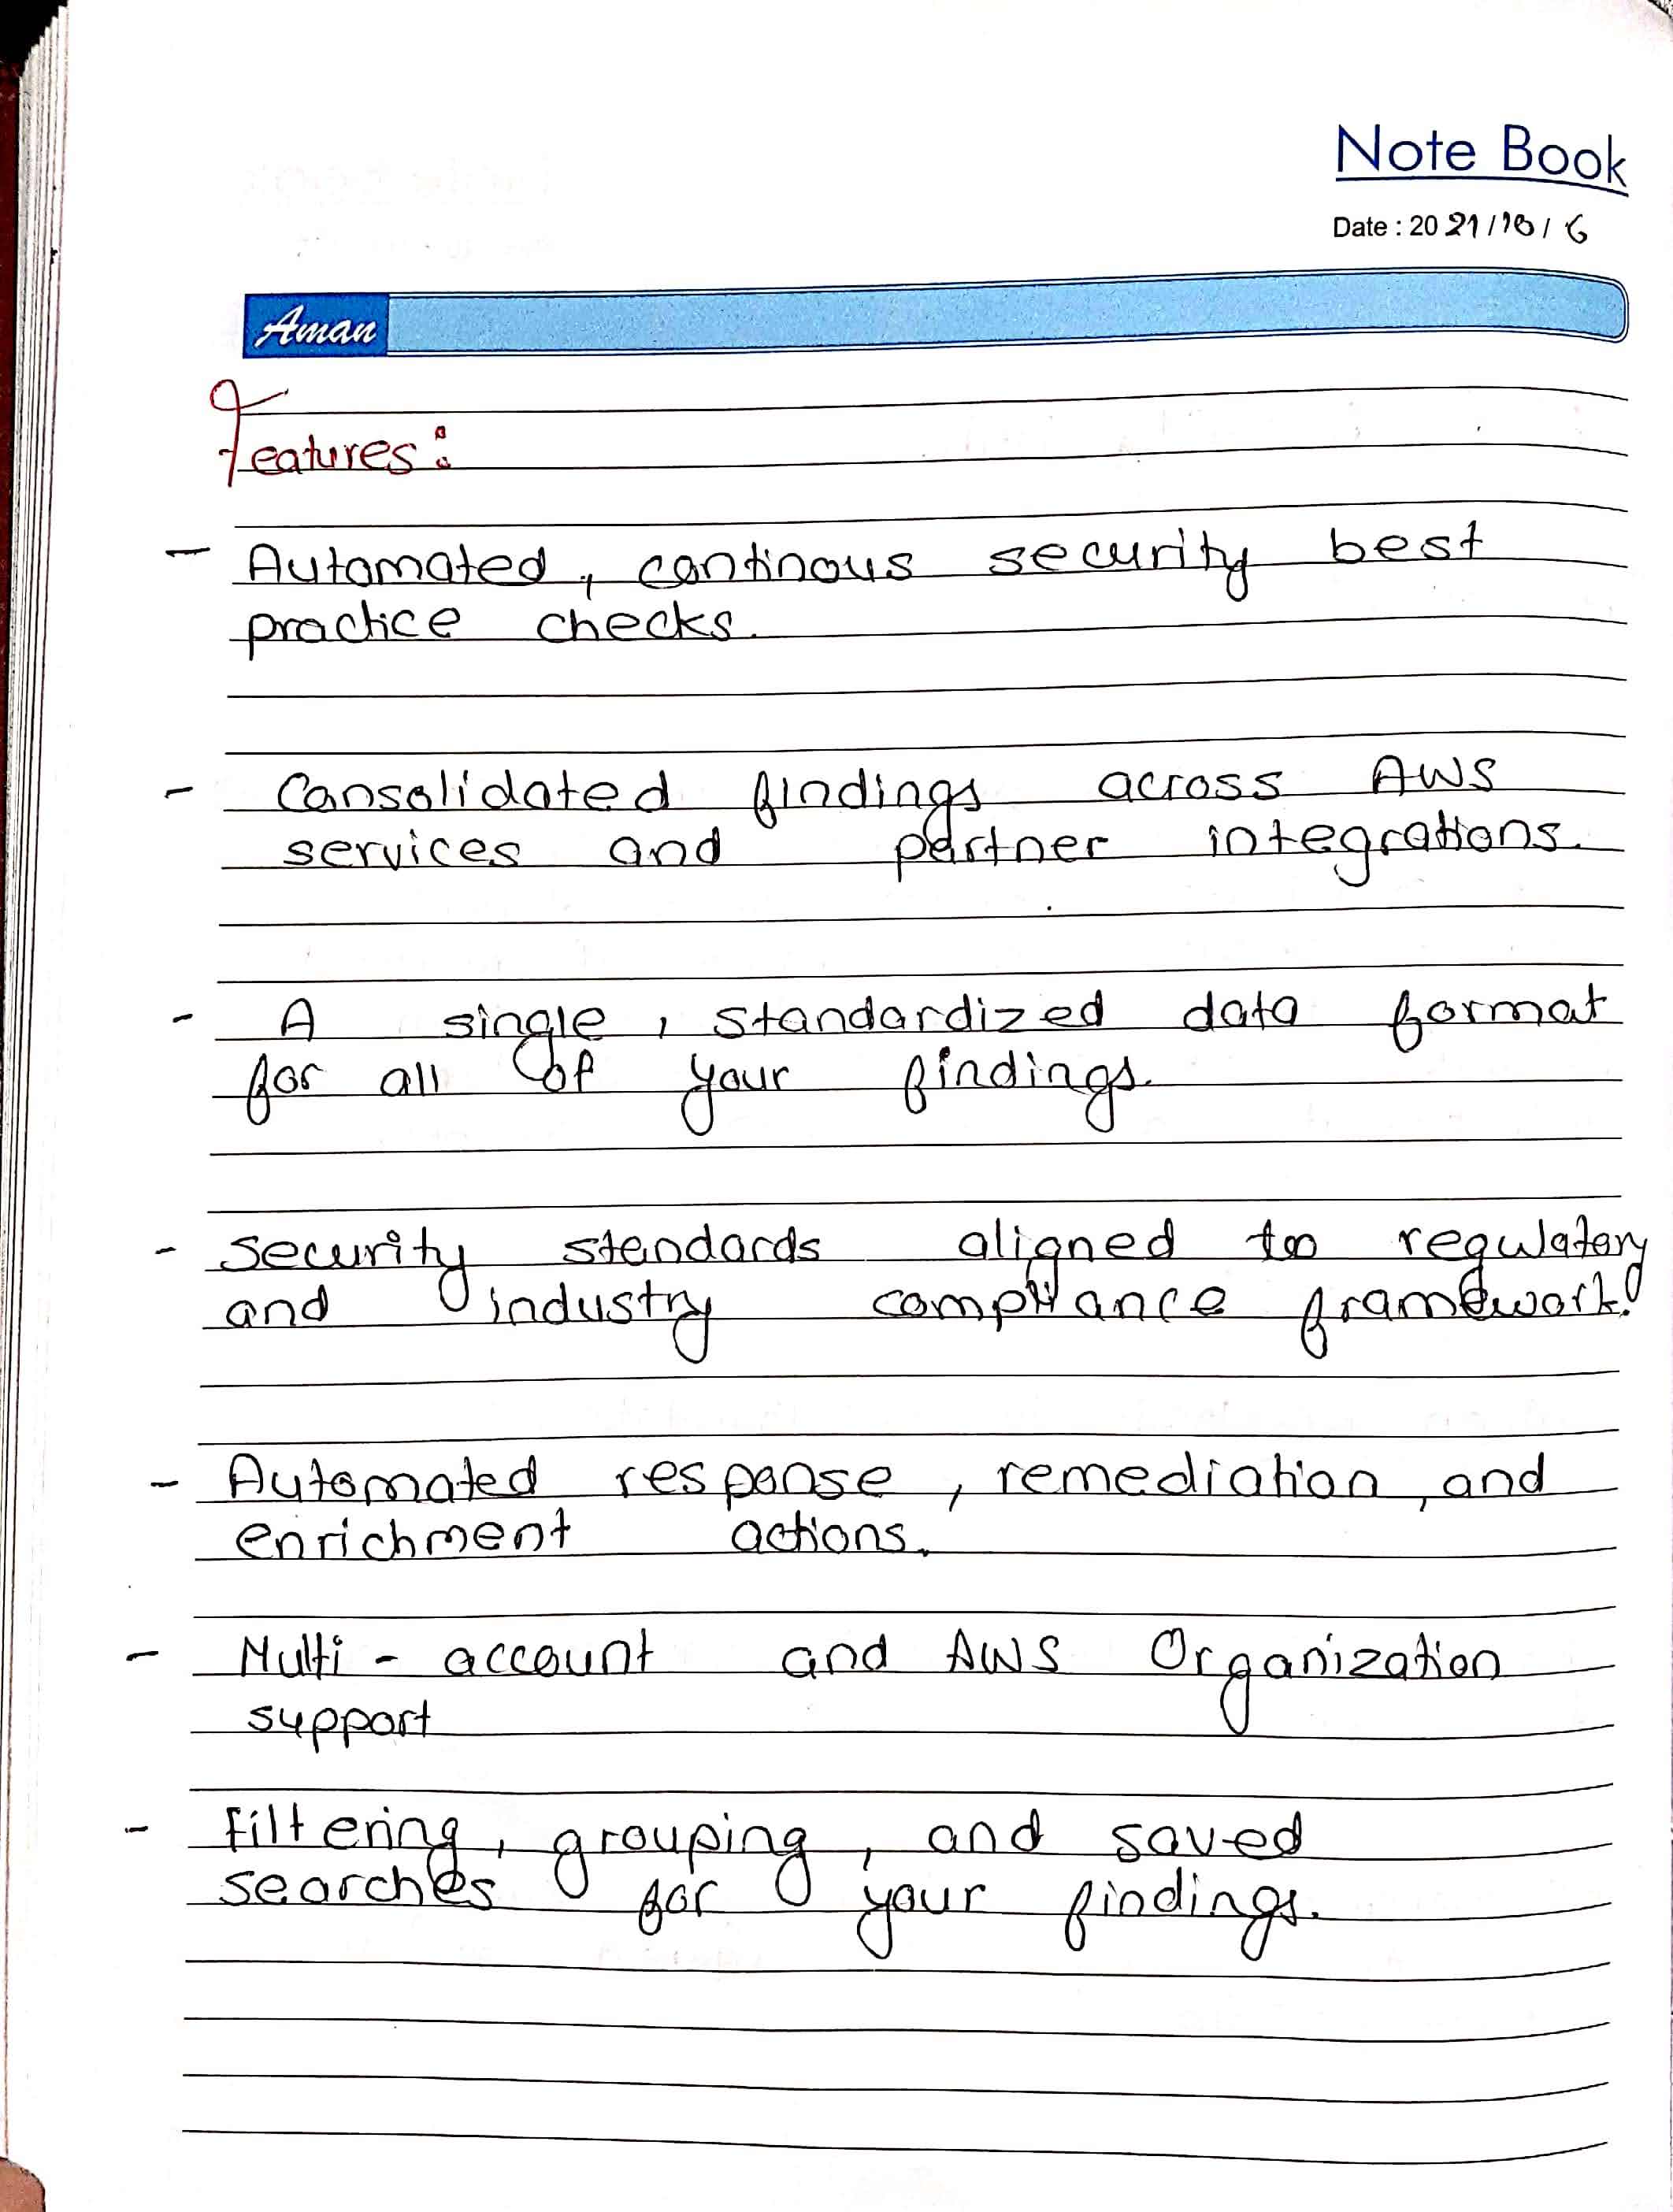 Note Book
Date : 2021/10/6
Aman
Features:
- Automated, continous security best
practice checks.
- Consolidated findings across AWS
services and partner integrations.
- A single, standardized data format
for all of your findings.
- Security standards aligned to regulatory
and industry compliance framework.
- Automated response, remediation, and
enrichment actions.
- Multi-account and AWS Organization
support
- Filtering, grouping, and saved
searches for your findings.